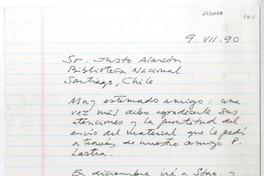 9. VII. 90
Sr. Justo Alarcón
Biblioteca Nacional
Santiago, Chile
Muy estimado amigo: una
vez más debo agradecerle sus
atenciones y la puntualidad del
envío del material que le pedí
a través de nuestro amigo P.
Lastra.
En diciembre iré a Stgo. y